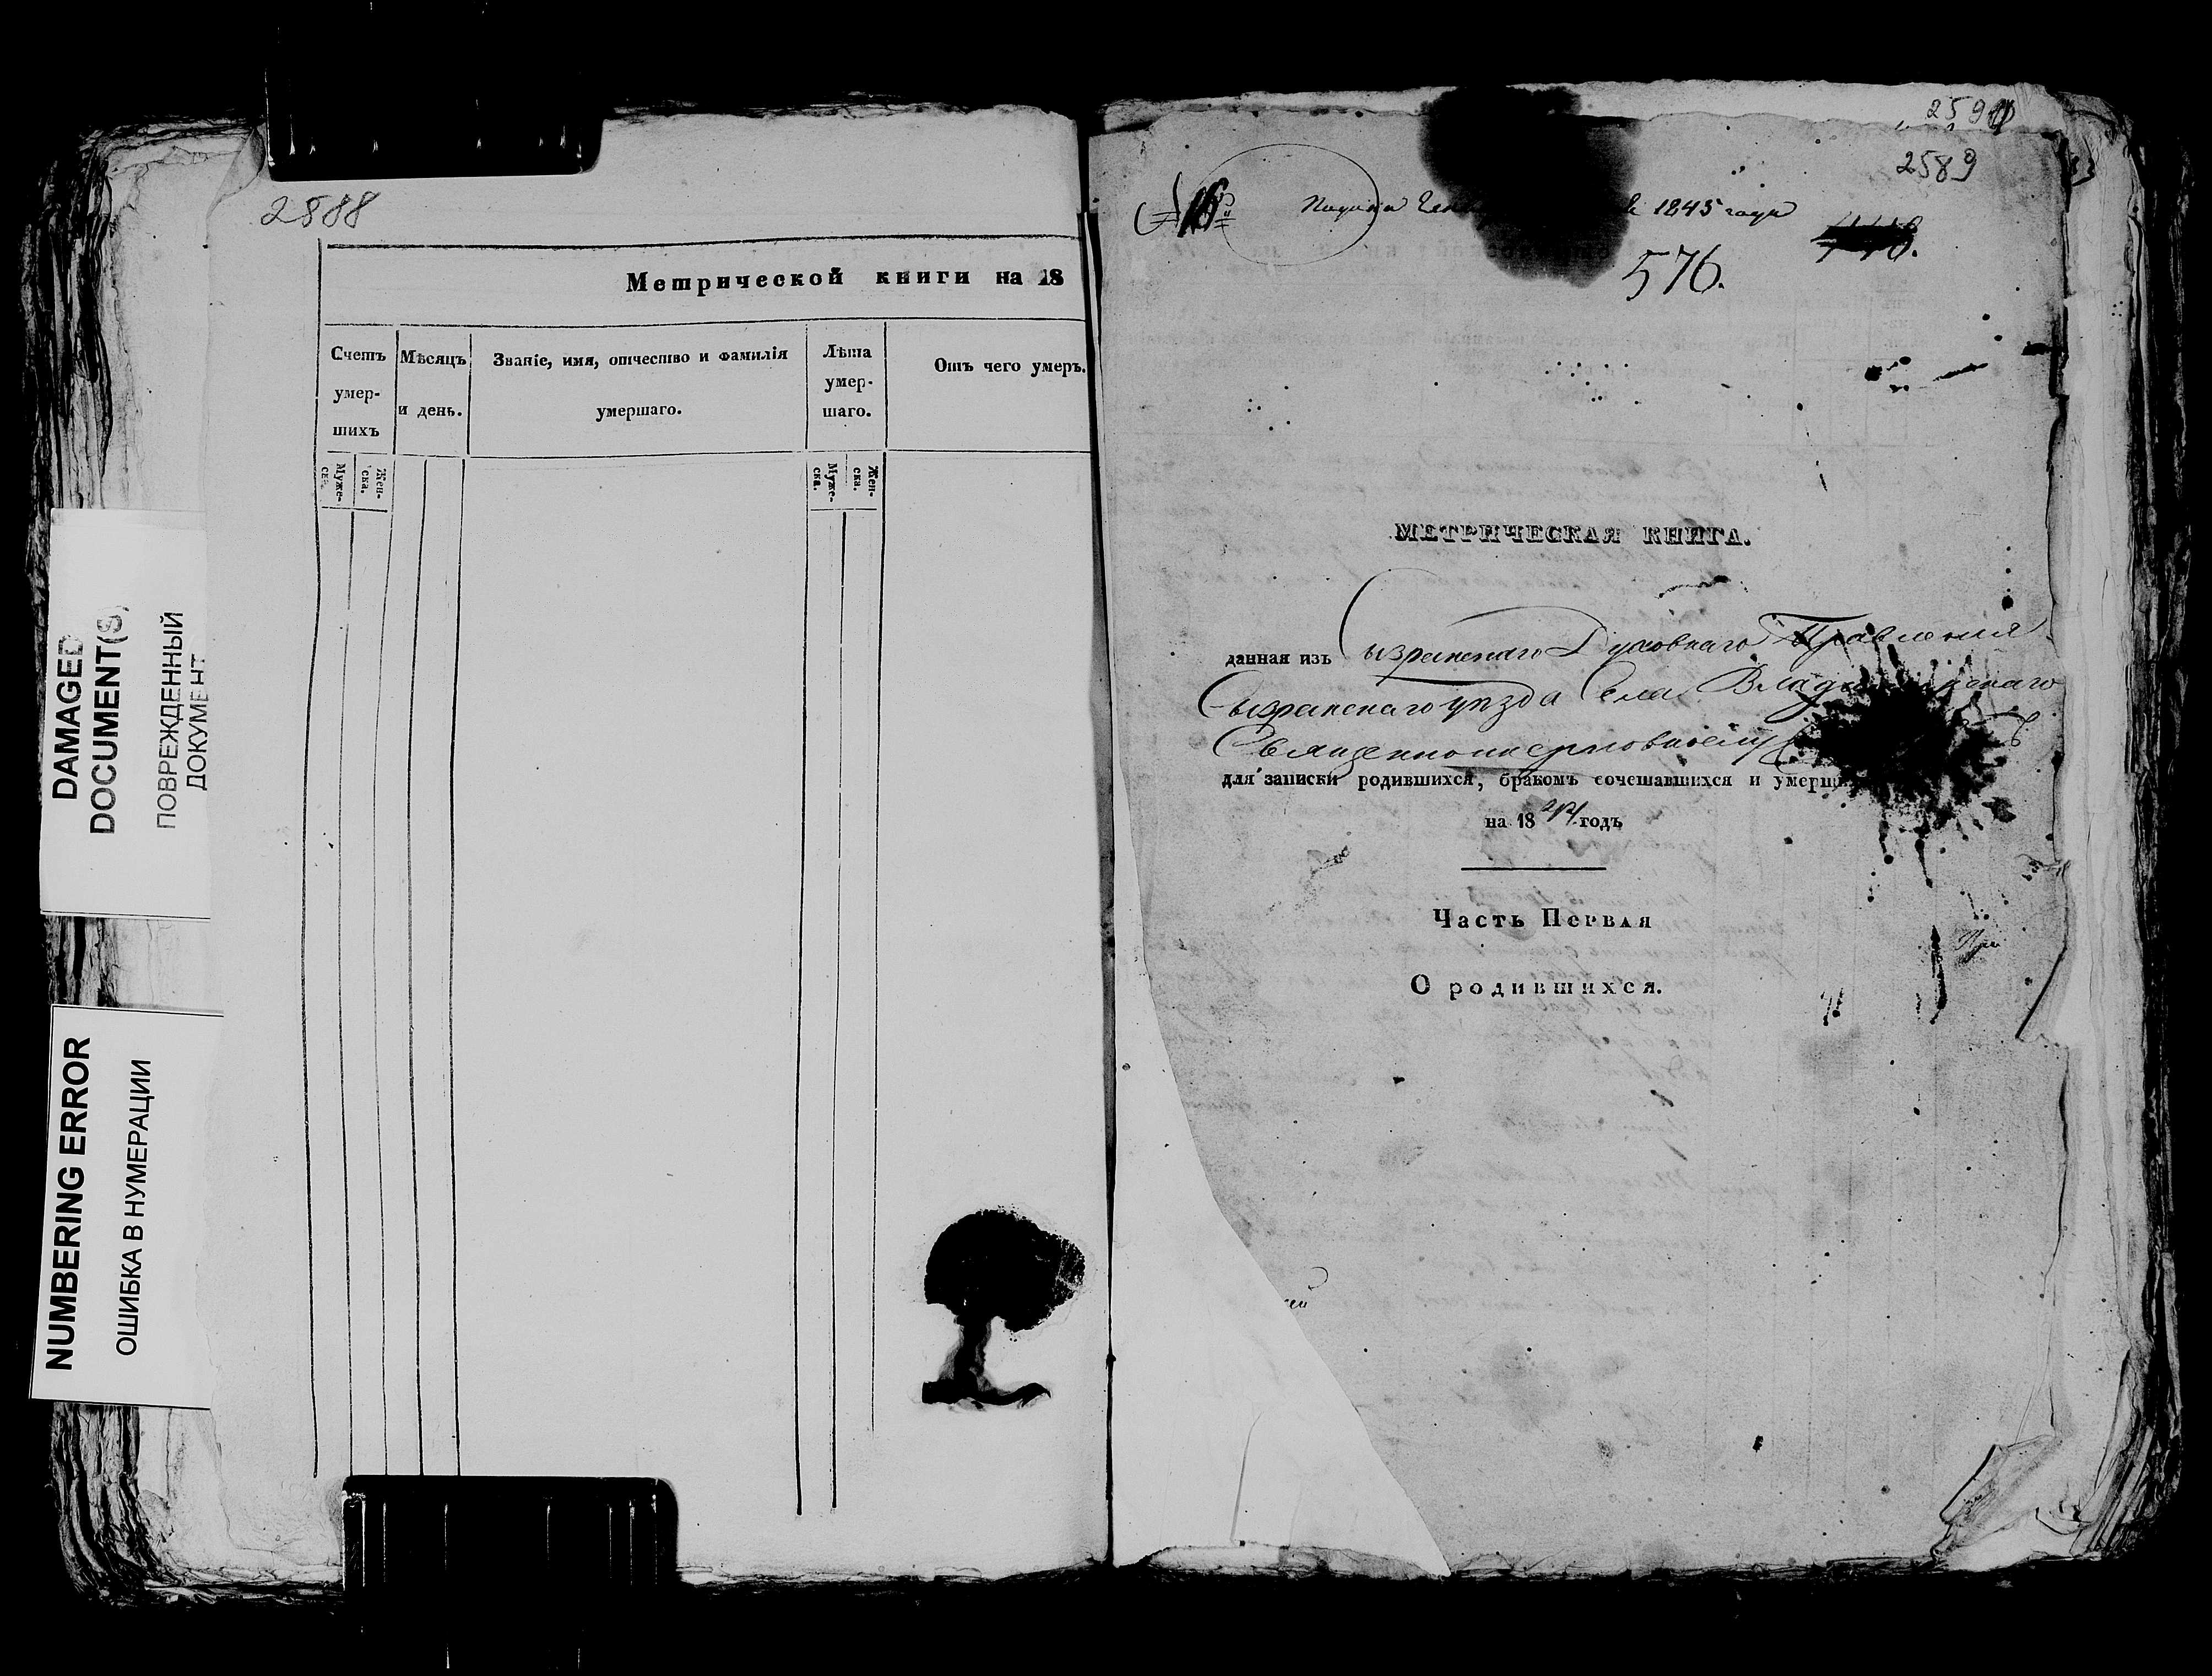 DAMAGED
DOCUMENT(S)
ПОВРЕЖДЕННЫЙ
ДОКУМЕНТ
NUMBERING ERROR
ОШИБКА В НУМЕРАЦИИ
2588
Метрической книги на 18
Счетъ умер- шихъ
Мѣсяцъ и день.
Званіе, имя, отчество и фамилія умершаго.
Лѣта умер- шаго.
Отъ чего умеръ.
Муже- ска.
Жен- ска.
Муже- ска.
Жен- ска.
259
2589
1845 года
576.
МЕТРИЧЕСКАЯ КНИГА.
данная изъ Сызранскаго Духовнаго Правленія
Сызранскаго уѣзда Села
Священноцерковно
для записки родившихся, бракомъ сочетавшихся и умерши
на 1844 годъ
Часть Первая
О родившихся.